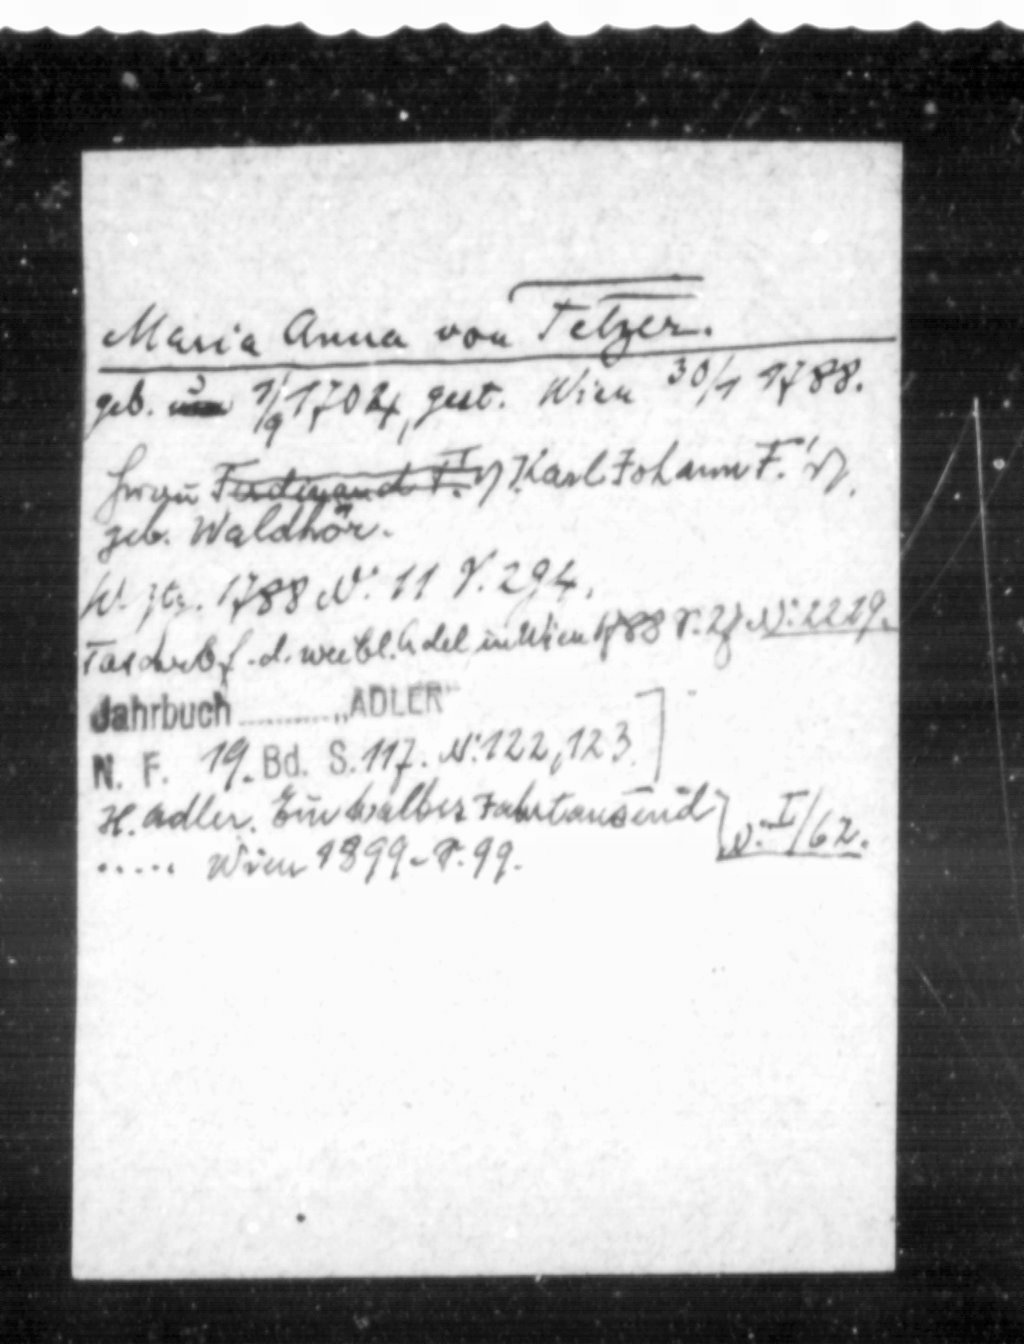 Maria Anna von Felzer.
geb. um 1/9 1704, gest. Wien 30/1 1788.
Frau Ferdinand F. Karl Johann F.
geb. Waldhör.
W. Ztg. 1788 N. 11 S. 294.
Taschenb. f. d. weibl. Adel in Wien 1788 S. 27 N: 2229.
Jahrbuch .......... „ADLER"
N. F. 19. Bd. S. 117. N: 122, 123.
H. Adler. Ein halbes Jahrtausend
..... Wien 1899. S. 99. N: I/62.